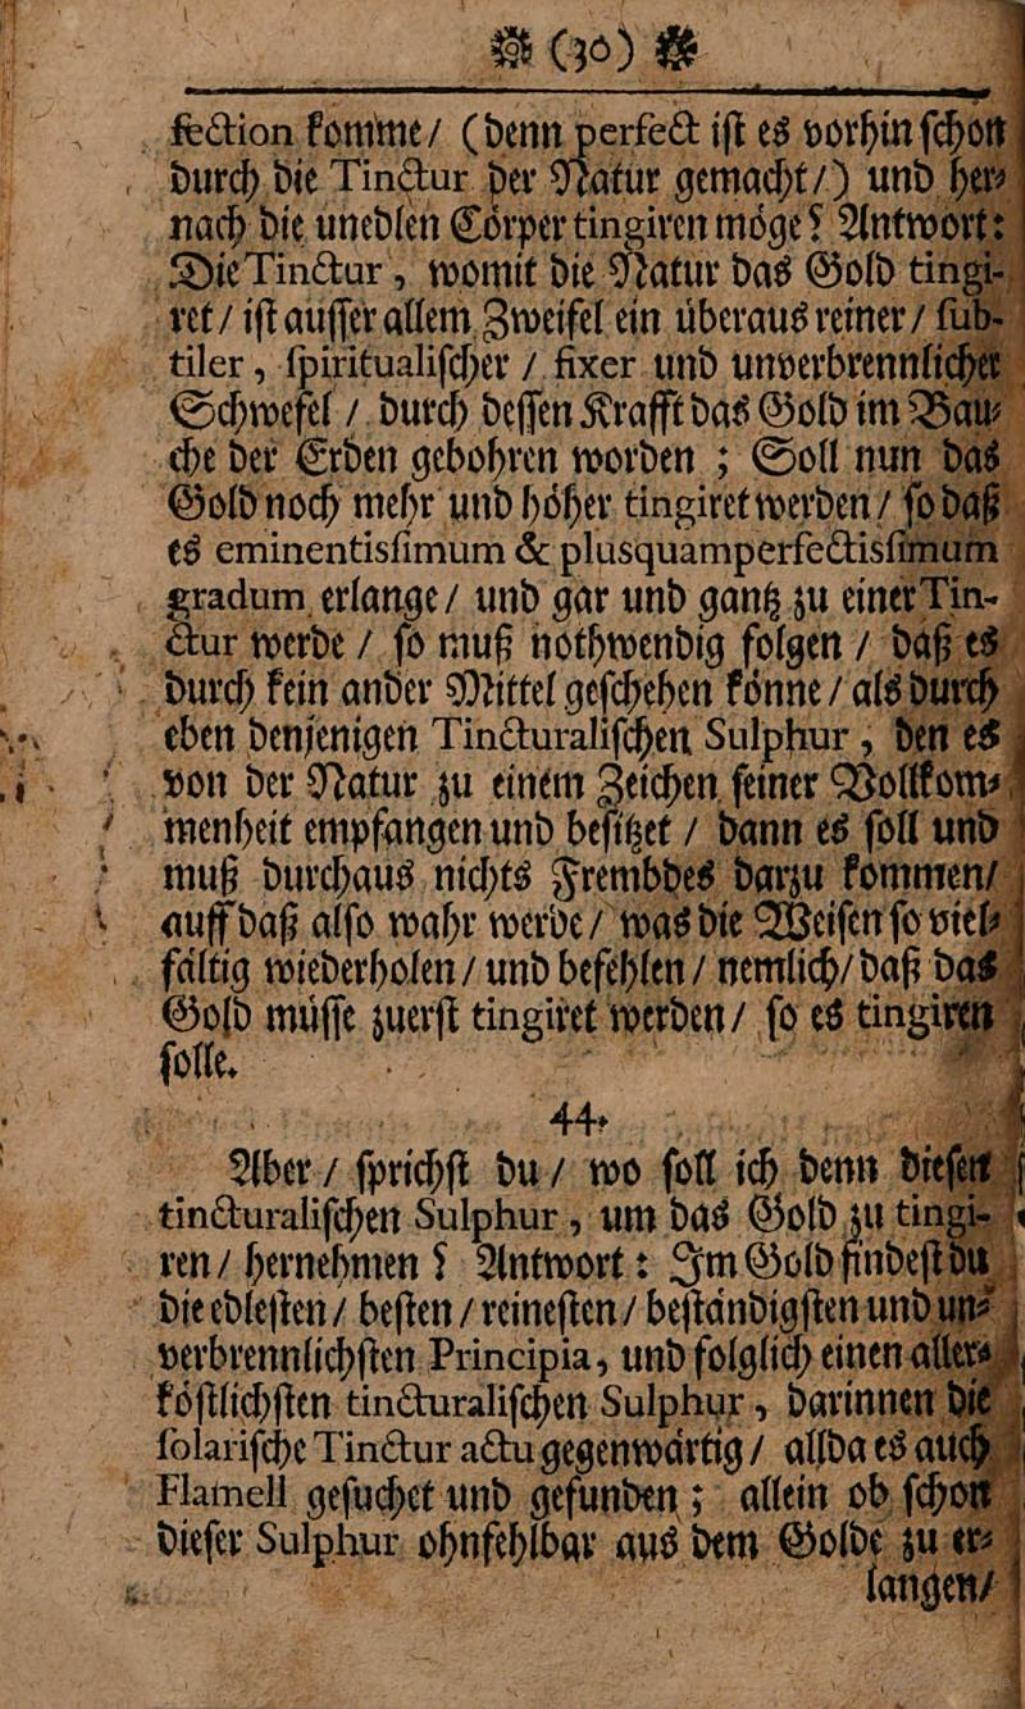 ❁ (30) ❁
fection komme/ (denn perfect ist es vorhin schon
durch die Tinctur der Natur gemacht/) und her-
nach die unedlen Cörper tingiren möge? Antwort:
Die Tinctur, womit die Natur das Gold tingi-
ret/ ist ausser allem Zweifel ein überaus reiner/ sub-
tiler, spiritualischer/ fixer und unverbrennlicher
Schwefel/ durch dessen Krafft das Gold im Bau-
che der Erden gebohren worden; Soll nun das
Gold noch mehr und höher tingiret werden/ so daß
es eminentissimum & plusquamperfectissimum
gradum erlange/ und gar und gantz zu einer Tin-
ctur werde/ so muß nothwendig folgen/ daß es
durch kein ander Mittel geschehen könne/ als durch
eben denjenigen Tincturalischen Sulphur, den es
von der Natur zu einem Zeichen seiner Vollkom-
menheit empfangen und besitzet/ dann es soll und
muß durchaus nichts Frembdes darzu kommen/
auff daß also wahr werde/ was die Weisen so viel-
fältig wiederholen/ und befehlen/ nemlich/ daß das
Gold müsse zuerst tingiret werden/ so es tingiren
solle.
44.
Aber/ sprichst du/ wo soll ich denn diesen
tincturalischen Sulphur, um das Gold zu tingi-
ren/ hernehmen? Antwort: Im Gold findest du
die edlesten/ besten/ reinesten/ beständigsten und un-
verbrennlichsten Principia, und folglich einen aller-
köstlichsten tincturalischen Sulphur, darinnen die
solarische Tinctur actu gegenwärtig/ allda es auch
Flamell gesuchet und gefunden; allein ob schon
dieser Sulphur ohnfehlbar aus dem Golde zu er-
langen/